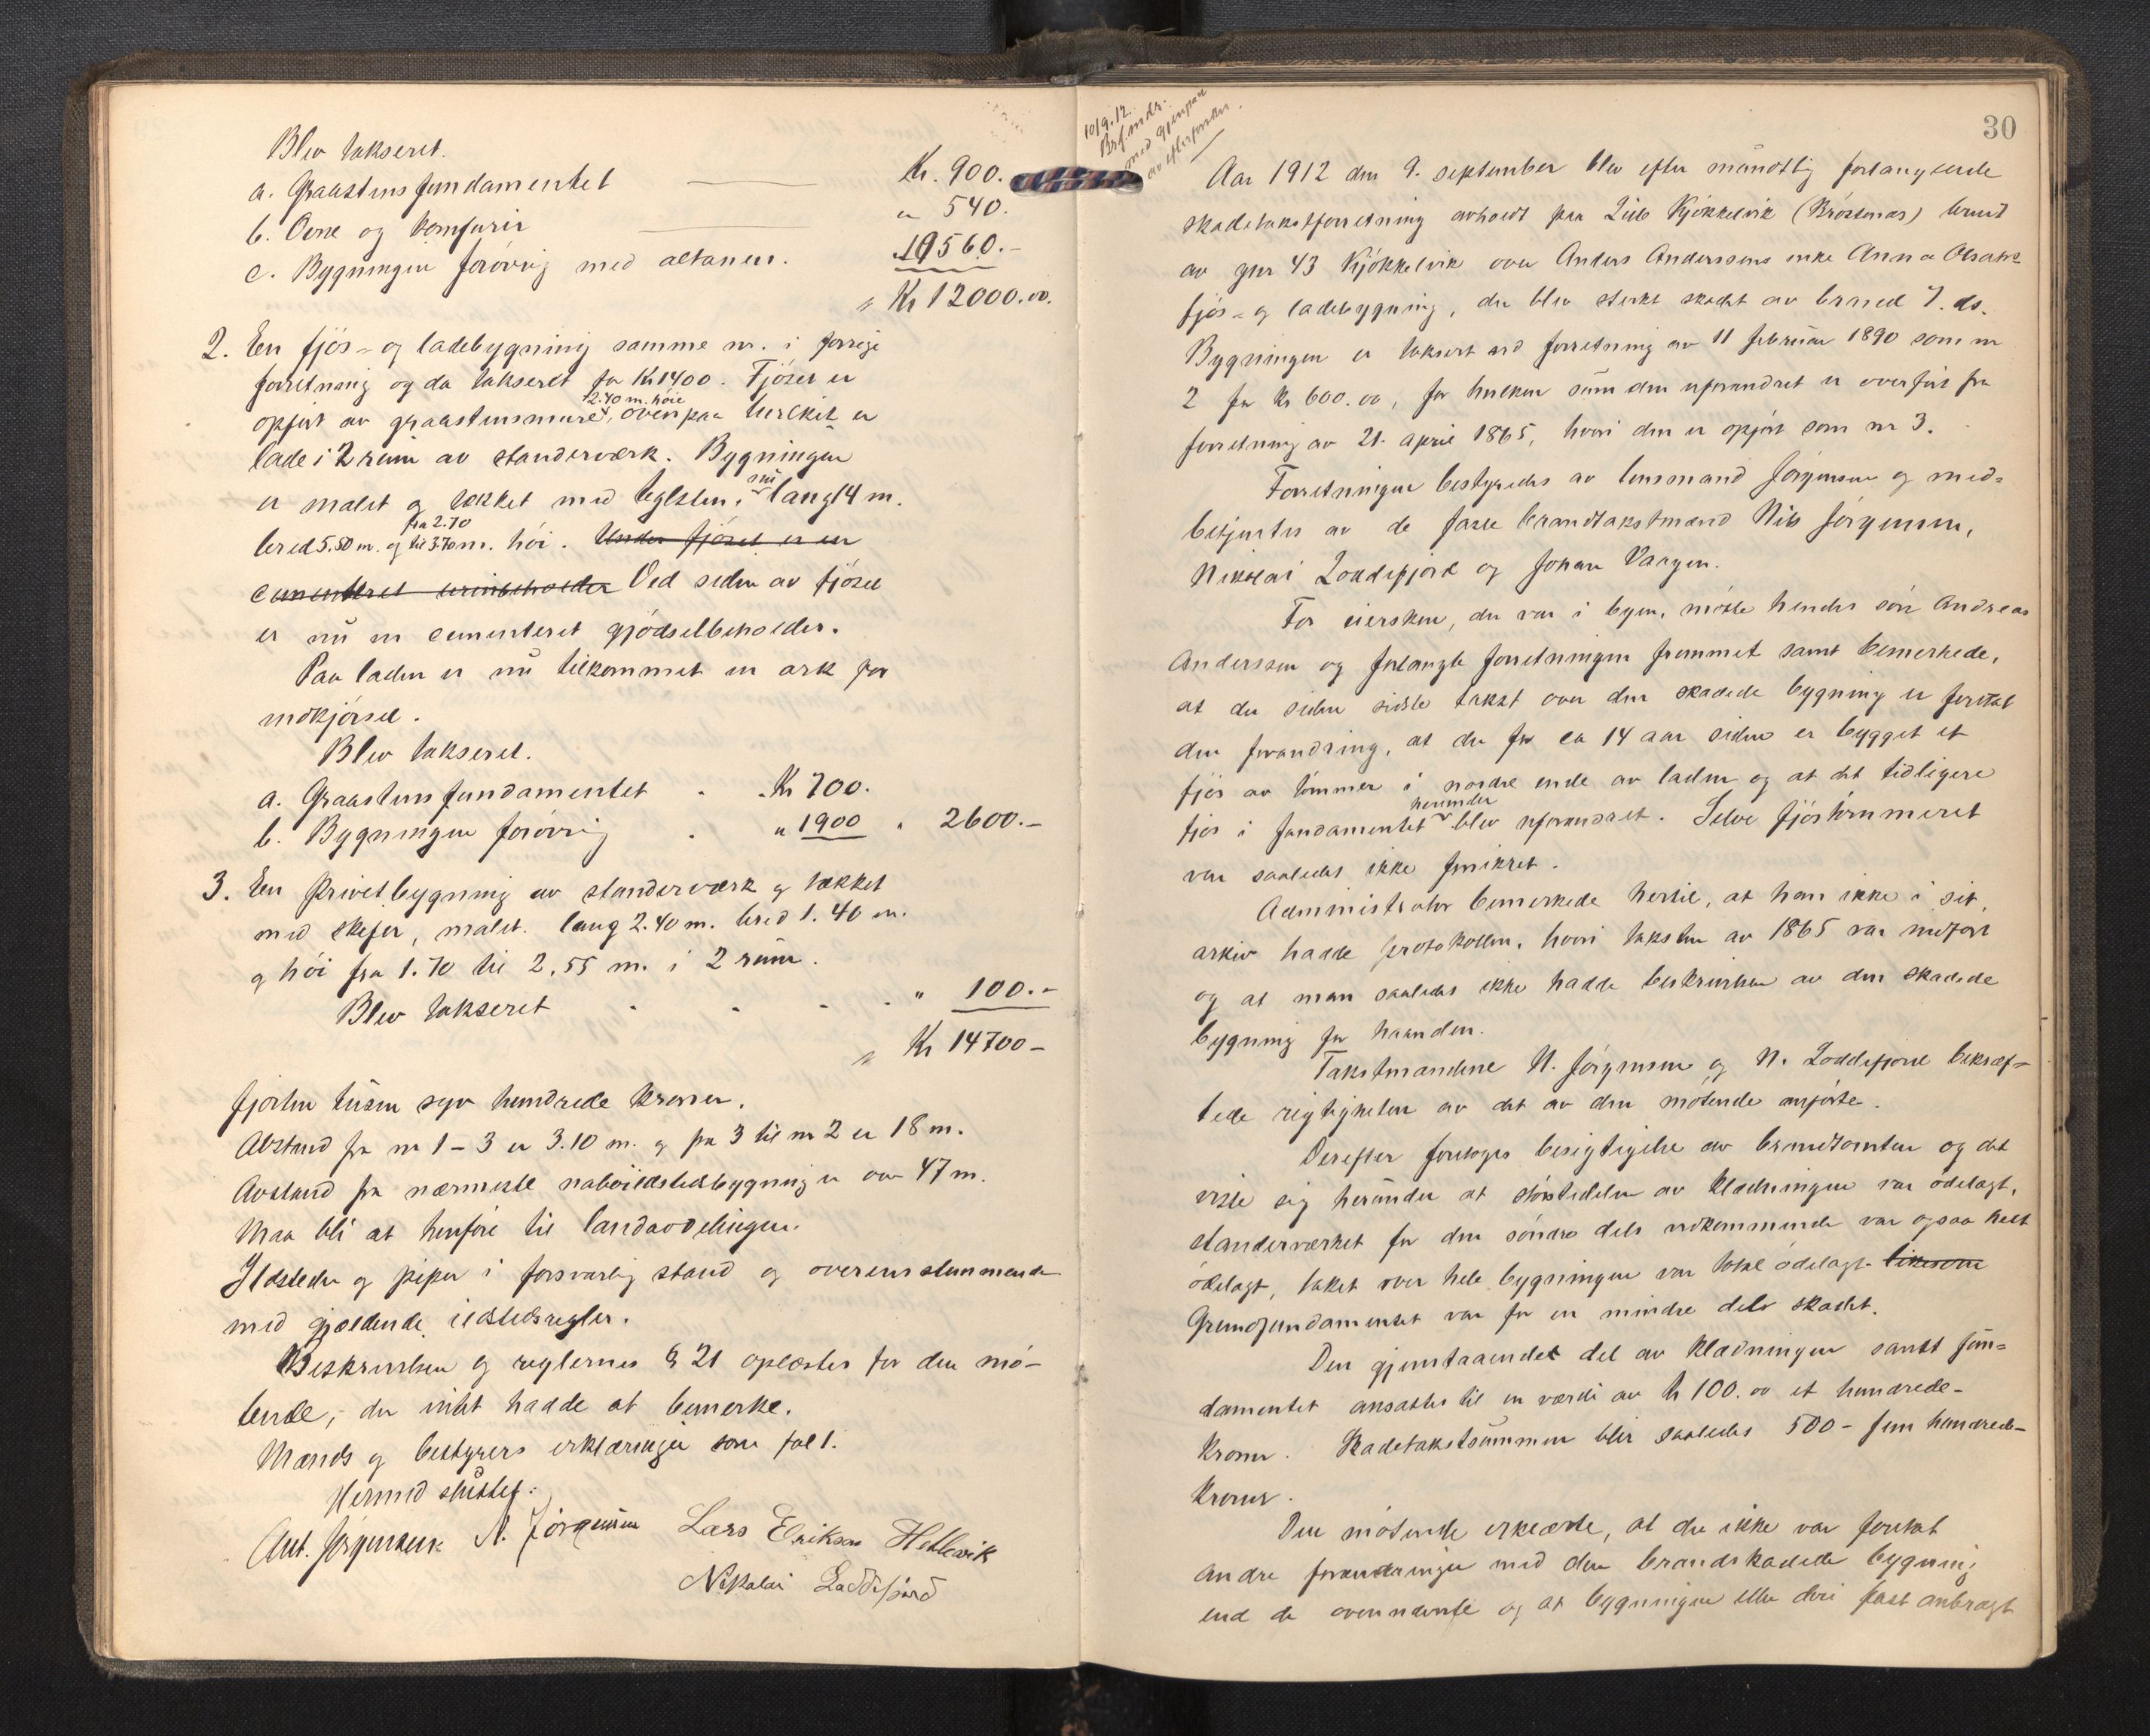 Blev takseret.
a. Graastensfundamentet Kr. 900.
b. Ovne og Komfurir " 540.
c. Bygningen forövrig med altanen. " 10560.-
" Kr 12000.00.
2. En fjös- og ladebygning samme nr. i forrige
forretning og da takseret for Kr 1400. Fjöset er
2.40 m. höie
opfört av graastensmure, ovenpaa hvilket er
lade i 2 rum av standerværk. Bygningen
er malet og tækket med teglsten, nu lang 14 m.
fra 2.70
bred 5.50 m. og til 3.70 m. höi. Under fjöset er en
cementeret urinbeholder Ved siden av fjöset
er nu en cementeret gjödselbeholder.
Paa laden er nu tilkommet en ark for
indkjörsel.
Blev takseret.
a. Graastensfundamentet Kr 700.
b. Bygningen forövrig " 1900 " 2600.-
3. En Privetbygning av standerværk og tækket
med skifer, malet. lang 2.40 m. bred 1.40 m.
og höi fra 1.70 til 2,55 m. i 2 rum.
Blev takseret " 100.-
" Kr 14700-
fjorten tusen syv hundrede kroner.
Avstand fra nr 1-3 er 3.10 m. og fra 3 til nr 2 er 18 m.
Avstand fra nærmeste naboildstedsbygning er over 47 m.
Maa bli at henföre til landavdelingen.
Ildsteder og piper i forsvarlig stand og overensstemmende
med gjældende ildstedsregler.
Beskrivelsen og reglernes § 21 oplæstes for den mö-
tende, der intet hadde at bemerke.
Mænds og bestyrers erklæringer som fol 1.
Hermed sluttet.
Ant. Jörgensen N. Jörgensen Lars Erikson Hetlevik
Nikolai Loddefjord
10/9.12.
Brf. mdr.
med gjenpart
av efterforskn.
30
Aar 1912 den 9. september blev efter mundtlig forlangende
skadetakstforretning avholdt paa Lille Kjökkelvik (Bröstenæs) bruk
av gnr 43 Kjökkelvik over Anders Anderssens enke Anna Olsdtrs
fjös- og ladebygning, der blev sterkt skadet av brand 7. ds.
Bygningen er taksert ved forretning av 11 februar 1890 som nr
2 for Kr 600.00, for hvilken sum den uforandret er overfört fra
forretning av 21. april 1865, hvori den er opfört som nr 3.
Forretningen bestyredes av lensmand Jörgensen og med-
betjentes av de faste brandtakstmænd Nils Jörgensen,
Nikolai Loddefjord og Johan Vaagen.
For eiersken, der var i byen, mötte hendes sön Andreas
Anderssen og forlangte forretningen fremmet samt bemerkede,
at der siden sidste takst over den skadede bygning er foretat
den forandring, at der for ca 14 aar siden er bygget et
fjös av tömmer i nordre ende av laden og at det tidligere
herunder
fjös i fundamentet blev uforandret. Selve fjöstömmeret
var saaledes ikke forsikret.
Administrator bemerkede hertil, at han ikke i sit
arkiv hadde protokollen, hvori taksten av 1865 var indfört
og at man saaledes ikke hadde beskrivelse av den skadede
bygning for haanden.
Takstmændene N. Jörgensen og N. Loddefjord bekræf-
tede rigtigheten av det av den mötende anförte.
Derefter foretoges besigtigelse av brandtomten og det
viste sig herunder at störstedelen av klædningen var ödelagt,
standerværket for den söndre dels vedkommende var ogsaa helt
ödelagt, taket over hele bygningen var totalt ödelagt likesom
Grundfundamentet var for en mindre dels skadet.
Den gjenstaaende del av klædningen samt fun-
damentet ansattes til en værdi av kr 100.00 et hundrede-
kroner. Skadetakstsummen blir saaledes 500- fem hundrede-
kroner.
Den mötende erklærte, at der ikke var foretat
andre forandringer med den brandskadede bygning
end de ovennævnte og at bygningen eller deri fast anbragt